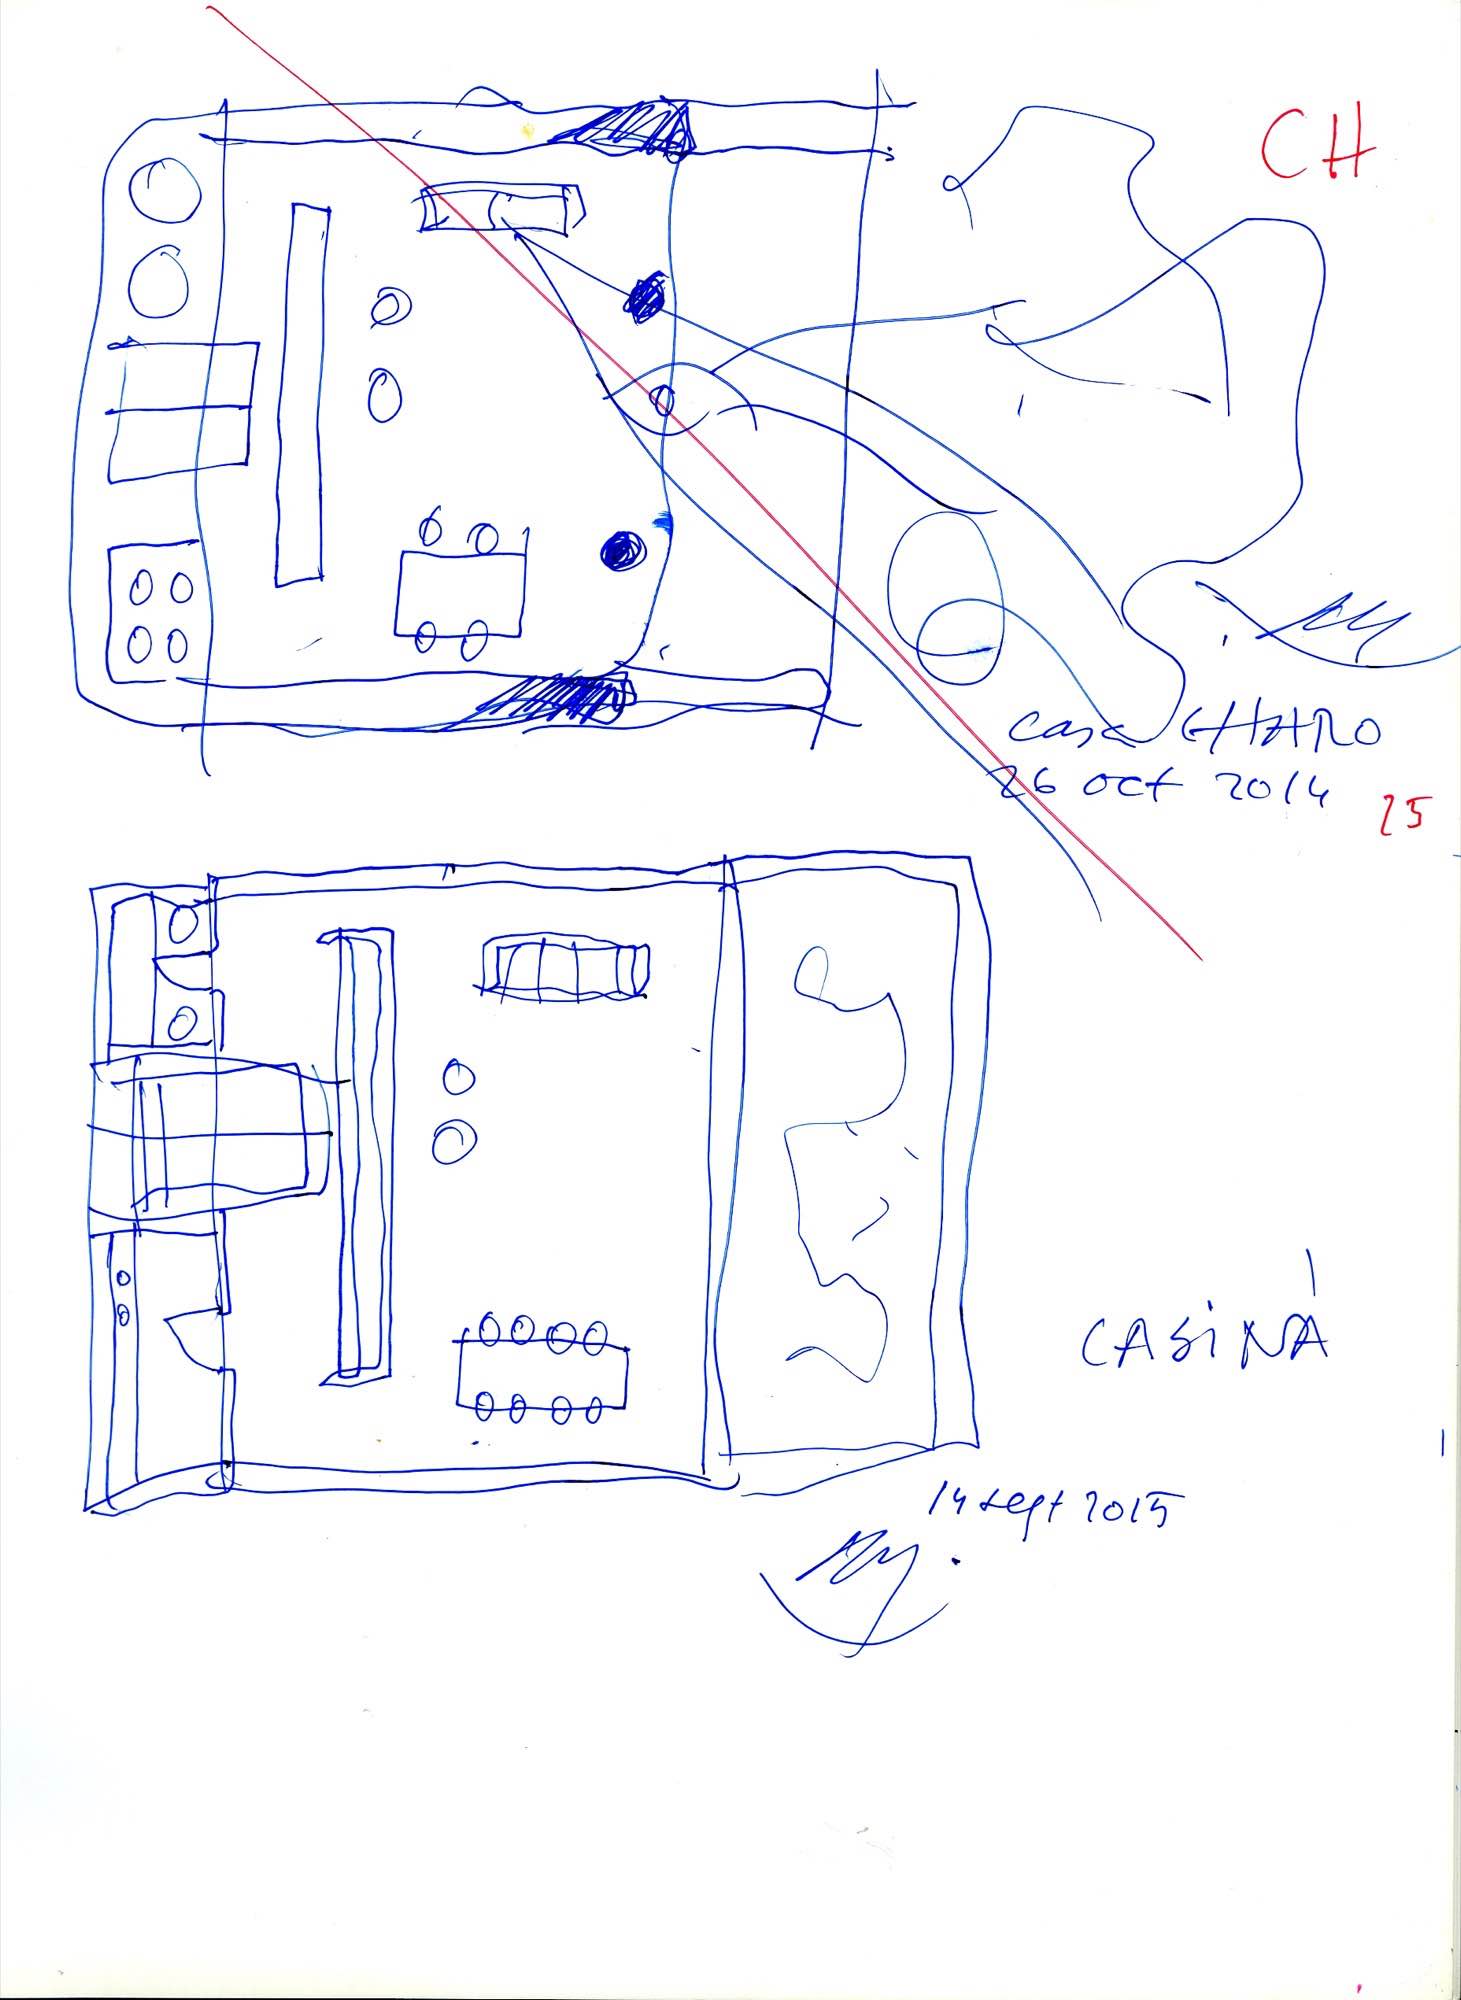 CH
casa CHARO
26 oct 2014
25
CASINA
14 sept 2015